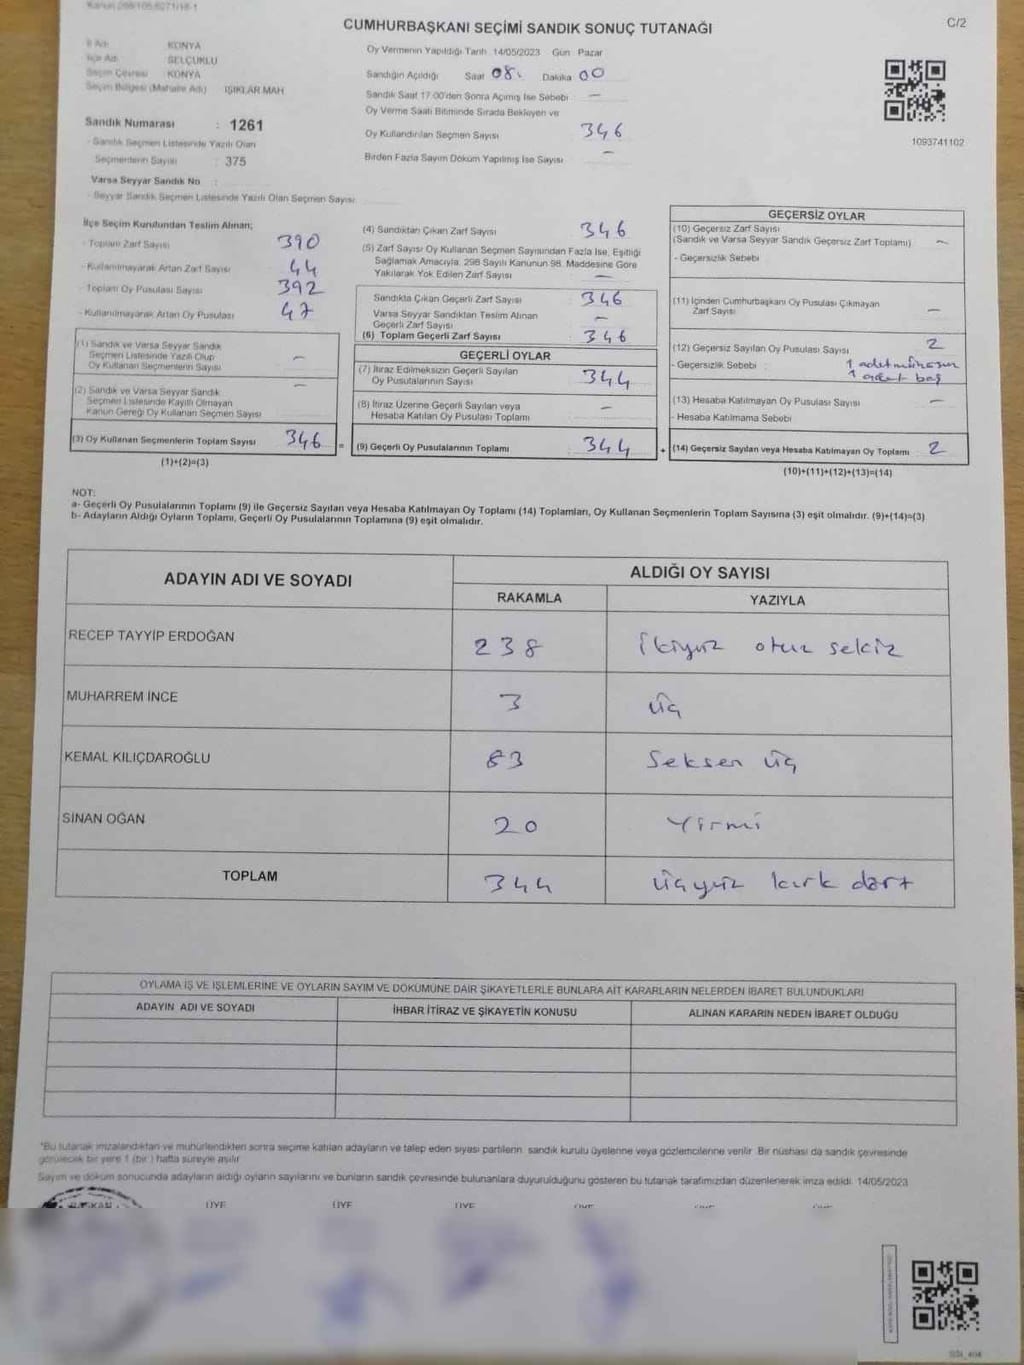 CUMHURBAŞKANI SEÇİMİ SANDIK SONUÇ TUTANAĞI
C/2
İl Adı : KONYA
İlçe Adı : SELÇUKLU
Seçim Çevresi : KONYA
Seçim Bölgesi (Mahalle Adı) : IŞIKLAR MAH
Sandık Numarası : 1261
- Sandık Seçmen Listesinde Yazılı Olan
Seçmenlerin Sayısı : 375
Varsa Seyyar Sandık No :
- Seyyar Sandık Seçmen Listesinde Yazılı Olan Seçmen Sayısı:
Oy Vermenin Yapıldığı Tarih 14/05/2023 Gün Pazar
Sandığın Açıldığı Saat 08. Dakika 00
Sandık Saat 17.00'den Sonra Açılmış İse Sebebi —
Oy Verme Saati Bitiminde Sırada Bekleyen ve
Oy Kullandırılan Seçmen Sayısı 346
Birden Fazla Sayım Döküm Yapılmış İse Sayısı —
1093741102
İlçe Seçim Kurulundan Teslim Alınan;
- Toplam Zarf Sayısı 390
- Kullanılmayarak Artan Zarf Sayısı 44
- Toplam Oy Pusulası Sayısı 392
- Kullanılmayarak Artan Oy Pusulası 47
(1) Sandık ve Varsa Seyyar Sandık
Seçmen Listesinde Yazılı Olup
Oy Kullanan Seçmenlerin Sayısı —
(2) Sandık ve Varsa Seyyar Sandık
Seçmen Listesinde Kayıtlı Olmayan
Kanun Gereği Oy Kullanan Seçmen Sayısı —
(3) Oy Kullanan Seçmenlerin Toplam Sayısı 346 =
(1)+(2)=(3)
(4) Sandıktan Çıkan Zarf Sayısı 346
(5) Zarf Sayısı Oy Kullanan Seçmen Sayısından Fazla İse, Eşitliği
Sağlamak Amacıyla, 298 Sayılı Kanunun 98. Maddesine Göre
Yakılarak Yok Edilen Zarf Sayısı —
Sandıkta Çıkan Geçerli Zarf Sayısı 346
Varsa Seyyar Sandıktan Teslim Alınan
Geçerli Zarf Sayısı —
(6) Toplam Geçerli Zarf Sayısı 346
GEÇERLİ OYLAR
(7) İtiraz Edilmeksizin Geçerli Sayılan
Oy Pusulalarının Sayısı 344
(8) İtiraz Üzerine Geçerli Sayılan veya
Hesaba Katılan Oy Pusulası Toplamı —
(9) Geçerli Oy Pusulalarının Toplamı 344 +
GEÇERSİZ OYLAR
(10) Geçersiz Zarf Sayısı
(Sandık ve Varsa Seyyar Sandık Geçersiz Zarf Toplamı) —
- Geçersizlik Sebebi
(11) İçinden Cumhurbaşkanı Oy Pusulası Çıkmayan
Zarf Sayısı —
(12) Geçersiz Sayılan Oy Pusulası Sayısı 2
- Geçersizlik Sebebi : 1 adet
1 adet boş
(13) Hesaba Katılmayan Oy Pusulası Sayısı —
- Hesaba Katılmama Sebebi
(14) Geçersiz Sayılan veya Hesaba Katılmayan Oy Toplamı 2
(10)+(11)+(12)+(13)=(14)
NOT:
a- Geçerli Oy Pusulalarının Toplamı (9) ile Geçersiz Sayılan veya Hesaba Katılmayan Oy Toplamı (14) Toplamları, Oy Kullanan Seçmenlerin Toplam Sayısına (3) eşit olmalıdır. (9)+(14)=(3)
b- Adayların Aldığı Oyların Toplamı, Geçerli Oy Pusulalarının Toplamına (9) eşit olmalıdır.
ADAYIN ADI VE SOYADI
ALDIĞI OY SAYISI
RAKAMLA YAZIYLA
RECEP TAYYİP ERDOĞAN 238 ikiyüz otuz sekiz
MUHARREM İNCE 3 üç
KEMAL KILIÇDAROĞLU 83 Seksen üç
SİNAN OĞAN 20 Yirmi
TOPLAM 344 üçyüz kırk dört
OYLAMA İŞ VE İŞLEMLERİNE VE OYLARIN SAYIM VE DÖKÜMÜNE DAİR ŞİKAYETLERLE BUNLARA AİT KARARLARIN NELERDEN İBARET BULUNDUKLARI
ADAYIN ADI VE SOYADI İHBAR İTİRAZ VE ŞİKAYETİN KONUSU ALINAN KARARIN NEDEN İBARET OLDUĞU
*Bu tutanak imzalandıktan ve mühürlendikten sonra seçime katılan adayların ve talep eden siyasi partilerin, sandık kurulu üyelerine veya gözlemcilerine verilir. Bir nüshası da sandık çevresinde
görülecek bir yere 1 (bir ) hafta süreyle asılır.
Sayım ve döküm sonucunda adayların aldığı oyların sayılarını ve bunların sandık çevresinde bulunanlara duyurulduğunu gösteren bu tutanak tarafımızdan düzenlenerek imza edildi. 14/05/2023
ÜYE ÜYE ÜYE